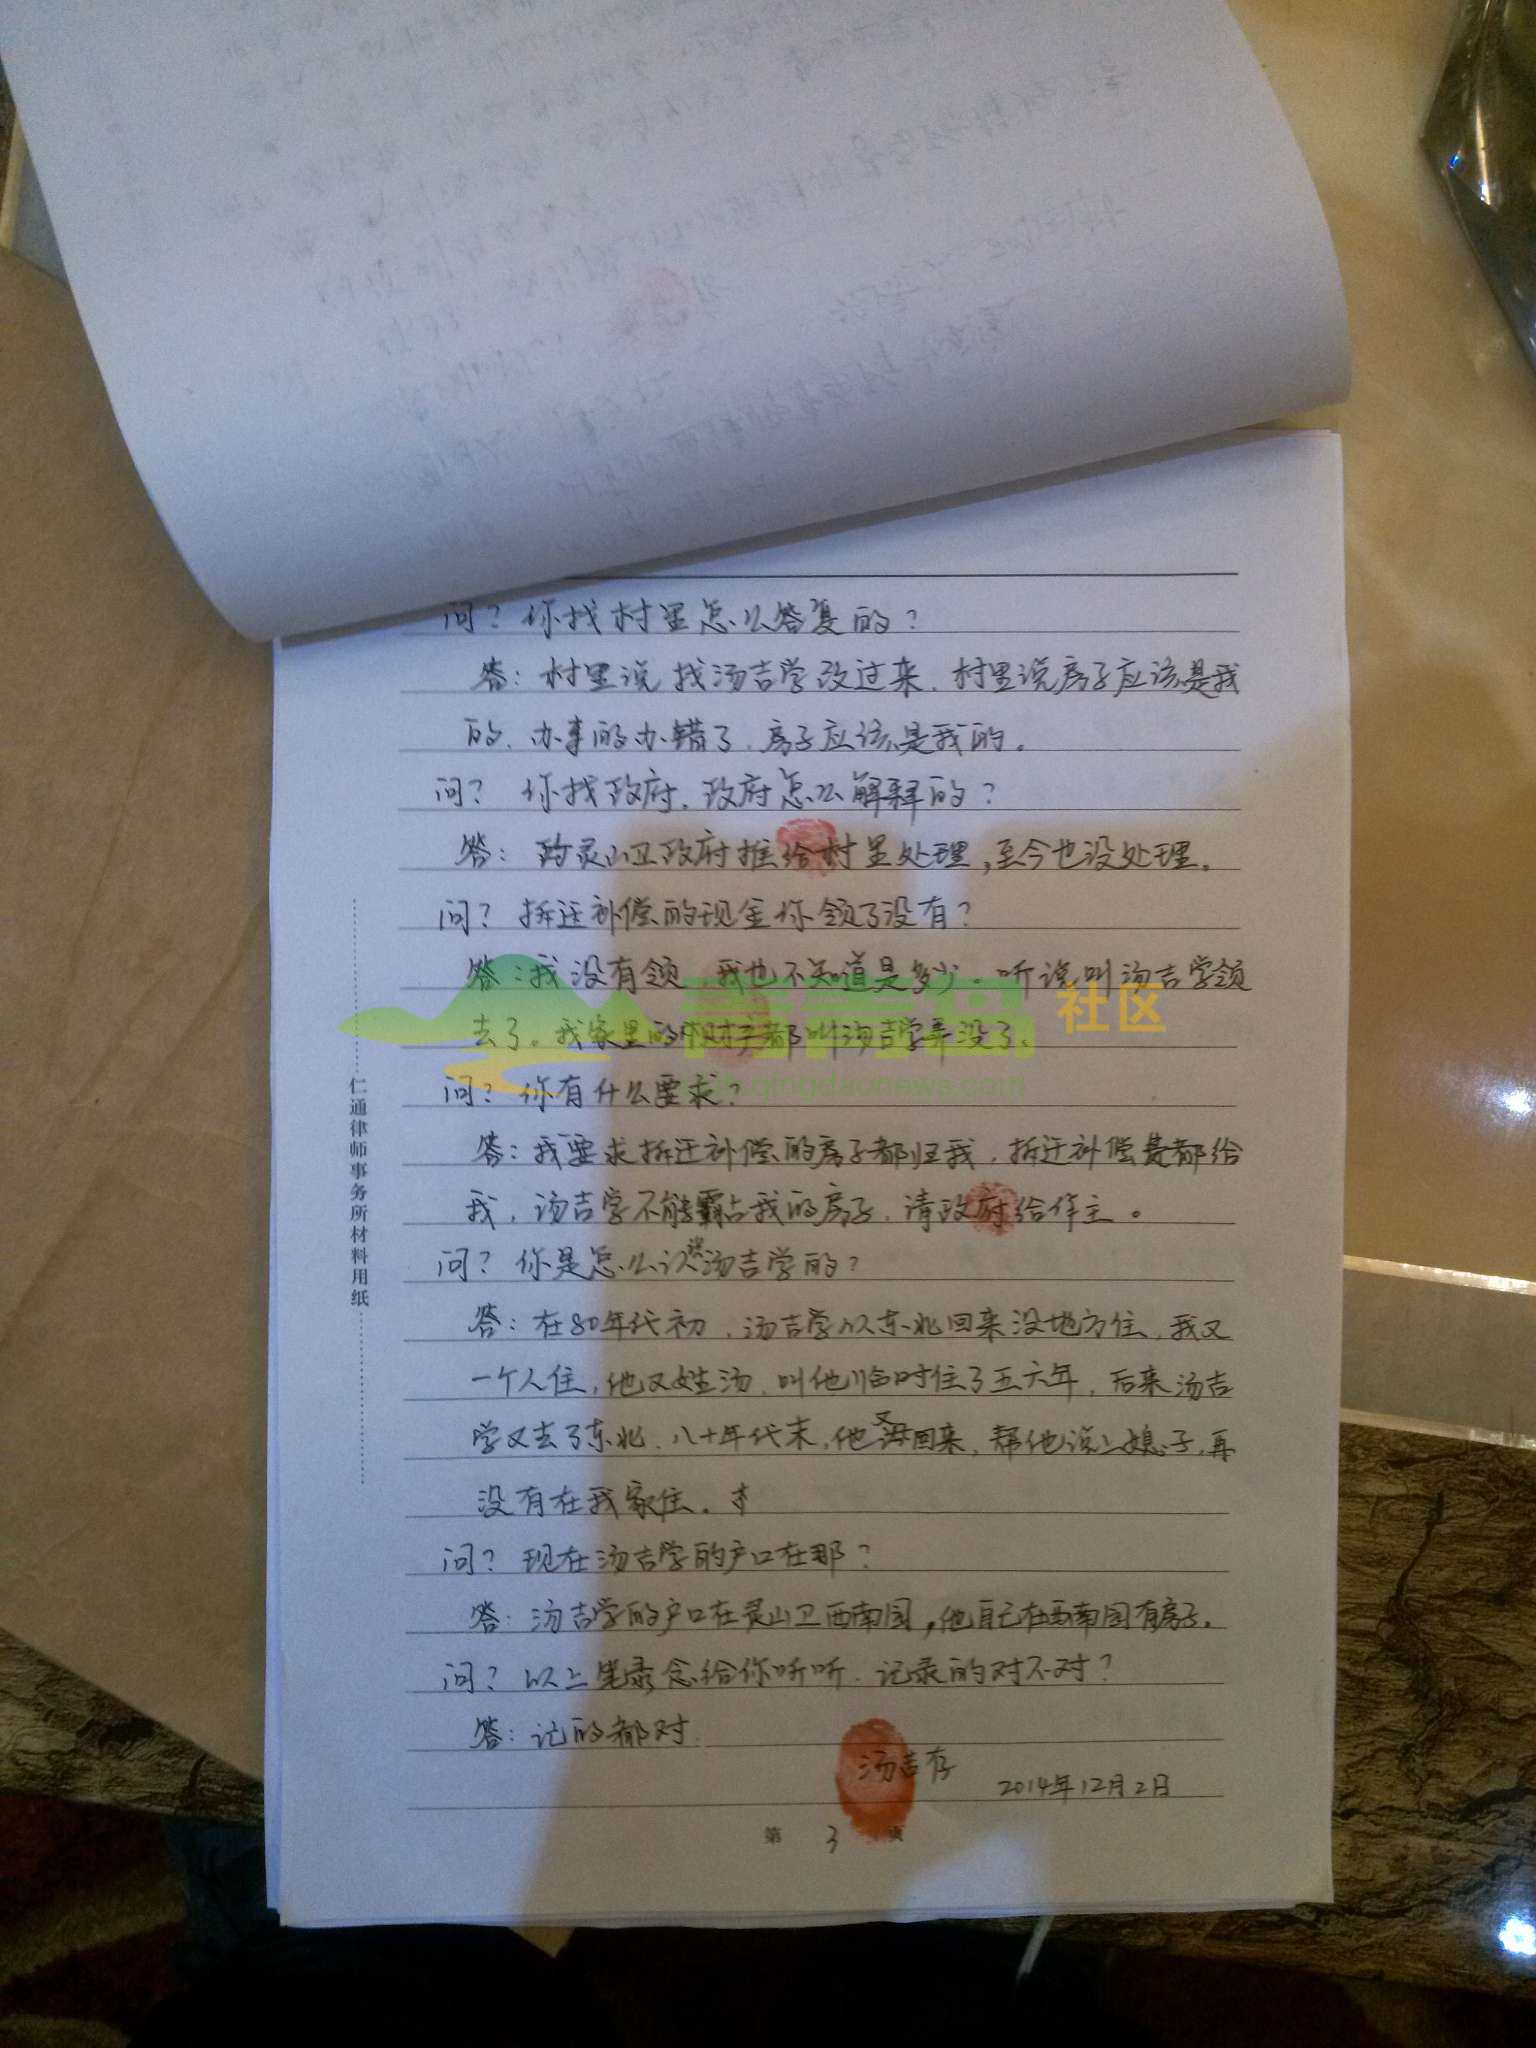 问？你找村里怎么答复的？
答：村里说找汤吉学改过来，村里说房子应该是我
的，办事的办错了，房子应该是我的。
问？你找政府，政府怎么解释的？
答：灵山卫政府推给村里处理，至今也没处理。
问？拆迁补偿的现金你领了没有？
答：我没有领，我也不知道是多少。听说叫汤吉学领
去了。我家里的 都叫汤吉学弄没了。
问？你有什么要求？
答：我要求拆迁补偿的房子都归我，拆迁补偿费都给
我，汤吉学不能霸占我的房子，请政府给作主。
问？你是怎么认识汤吉学的？
答：在80年代初，汤吉学从东北回来没地方住，我又
一个人住，他又姓汤，叫他临时住了五六年，后来汤吉
学又去了东北，八十年代末，他又回来，帮他说上媳子，再
没有在我家住。
问？现在汤吉学的户口在那？
答：汤吉学的户口在灵山卫西南国，他自己在西南国有房子。
问？以上笔录念给你听听，记录的对不对？
答：记的都对.
汤吉存
2014年12月2日
第 3 页
仁通律师事务所材料用纸
青青岛 社区
qingdaonews.com